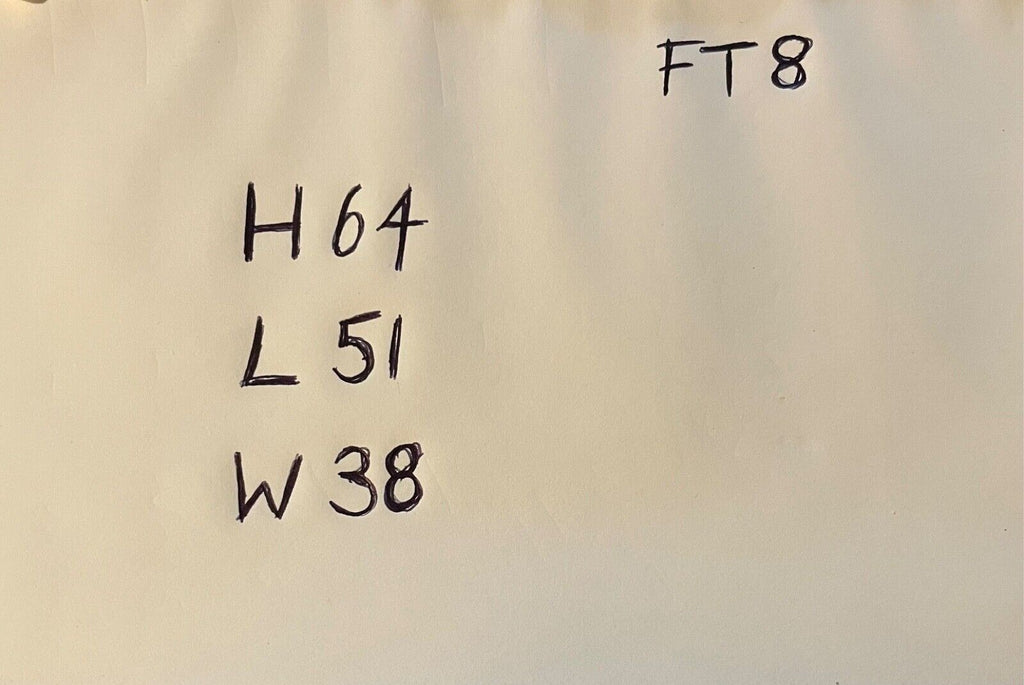 FT8
H 64
L 51
W 38